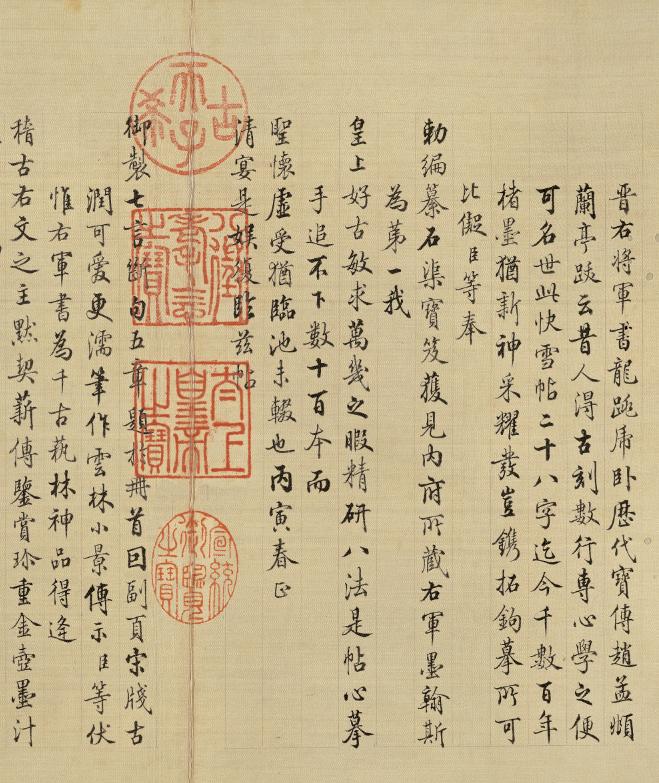 晉右將軍書龍跳席卧歷代寶傳趙孟頫
蘭亭跋云昔人得古刻數行專心學之便
可名世此快雪帖二十八字迄今千數百年
楮墨猶新神采耀發豈鐫拓鉤摹所可
比儗臣等奉
勅編纂石渠寶笈獲見內府所藏右軍墨翰斯
為第一我
皇上好古敏求萬幾之暇精研八法是帖心摹
手追不下數十百本而
聖懷虛受猶臨池未輟也丙寅春正
清宴是娛復臨茲帖
御製七言斷句五章題於冊首回副頁宋牋古
潤可愛更濡筆作雲林小景傳示臣等伏
惟右軍書為千古蓺林神品得逢
稽古右文之主默契薪傳鑒賞珍重金壺墨汁
古希天子
八徵耄念之寶
太上皇帝之寶
宣統御覽之寶